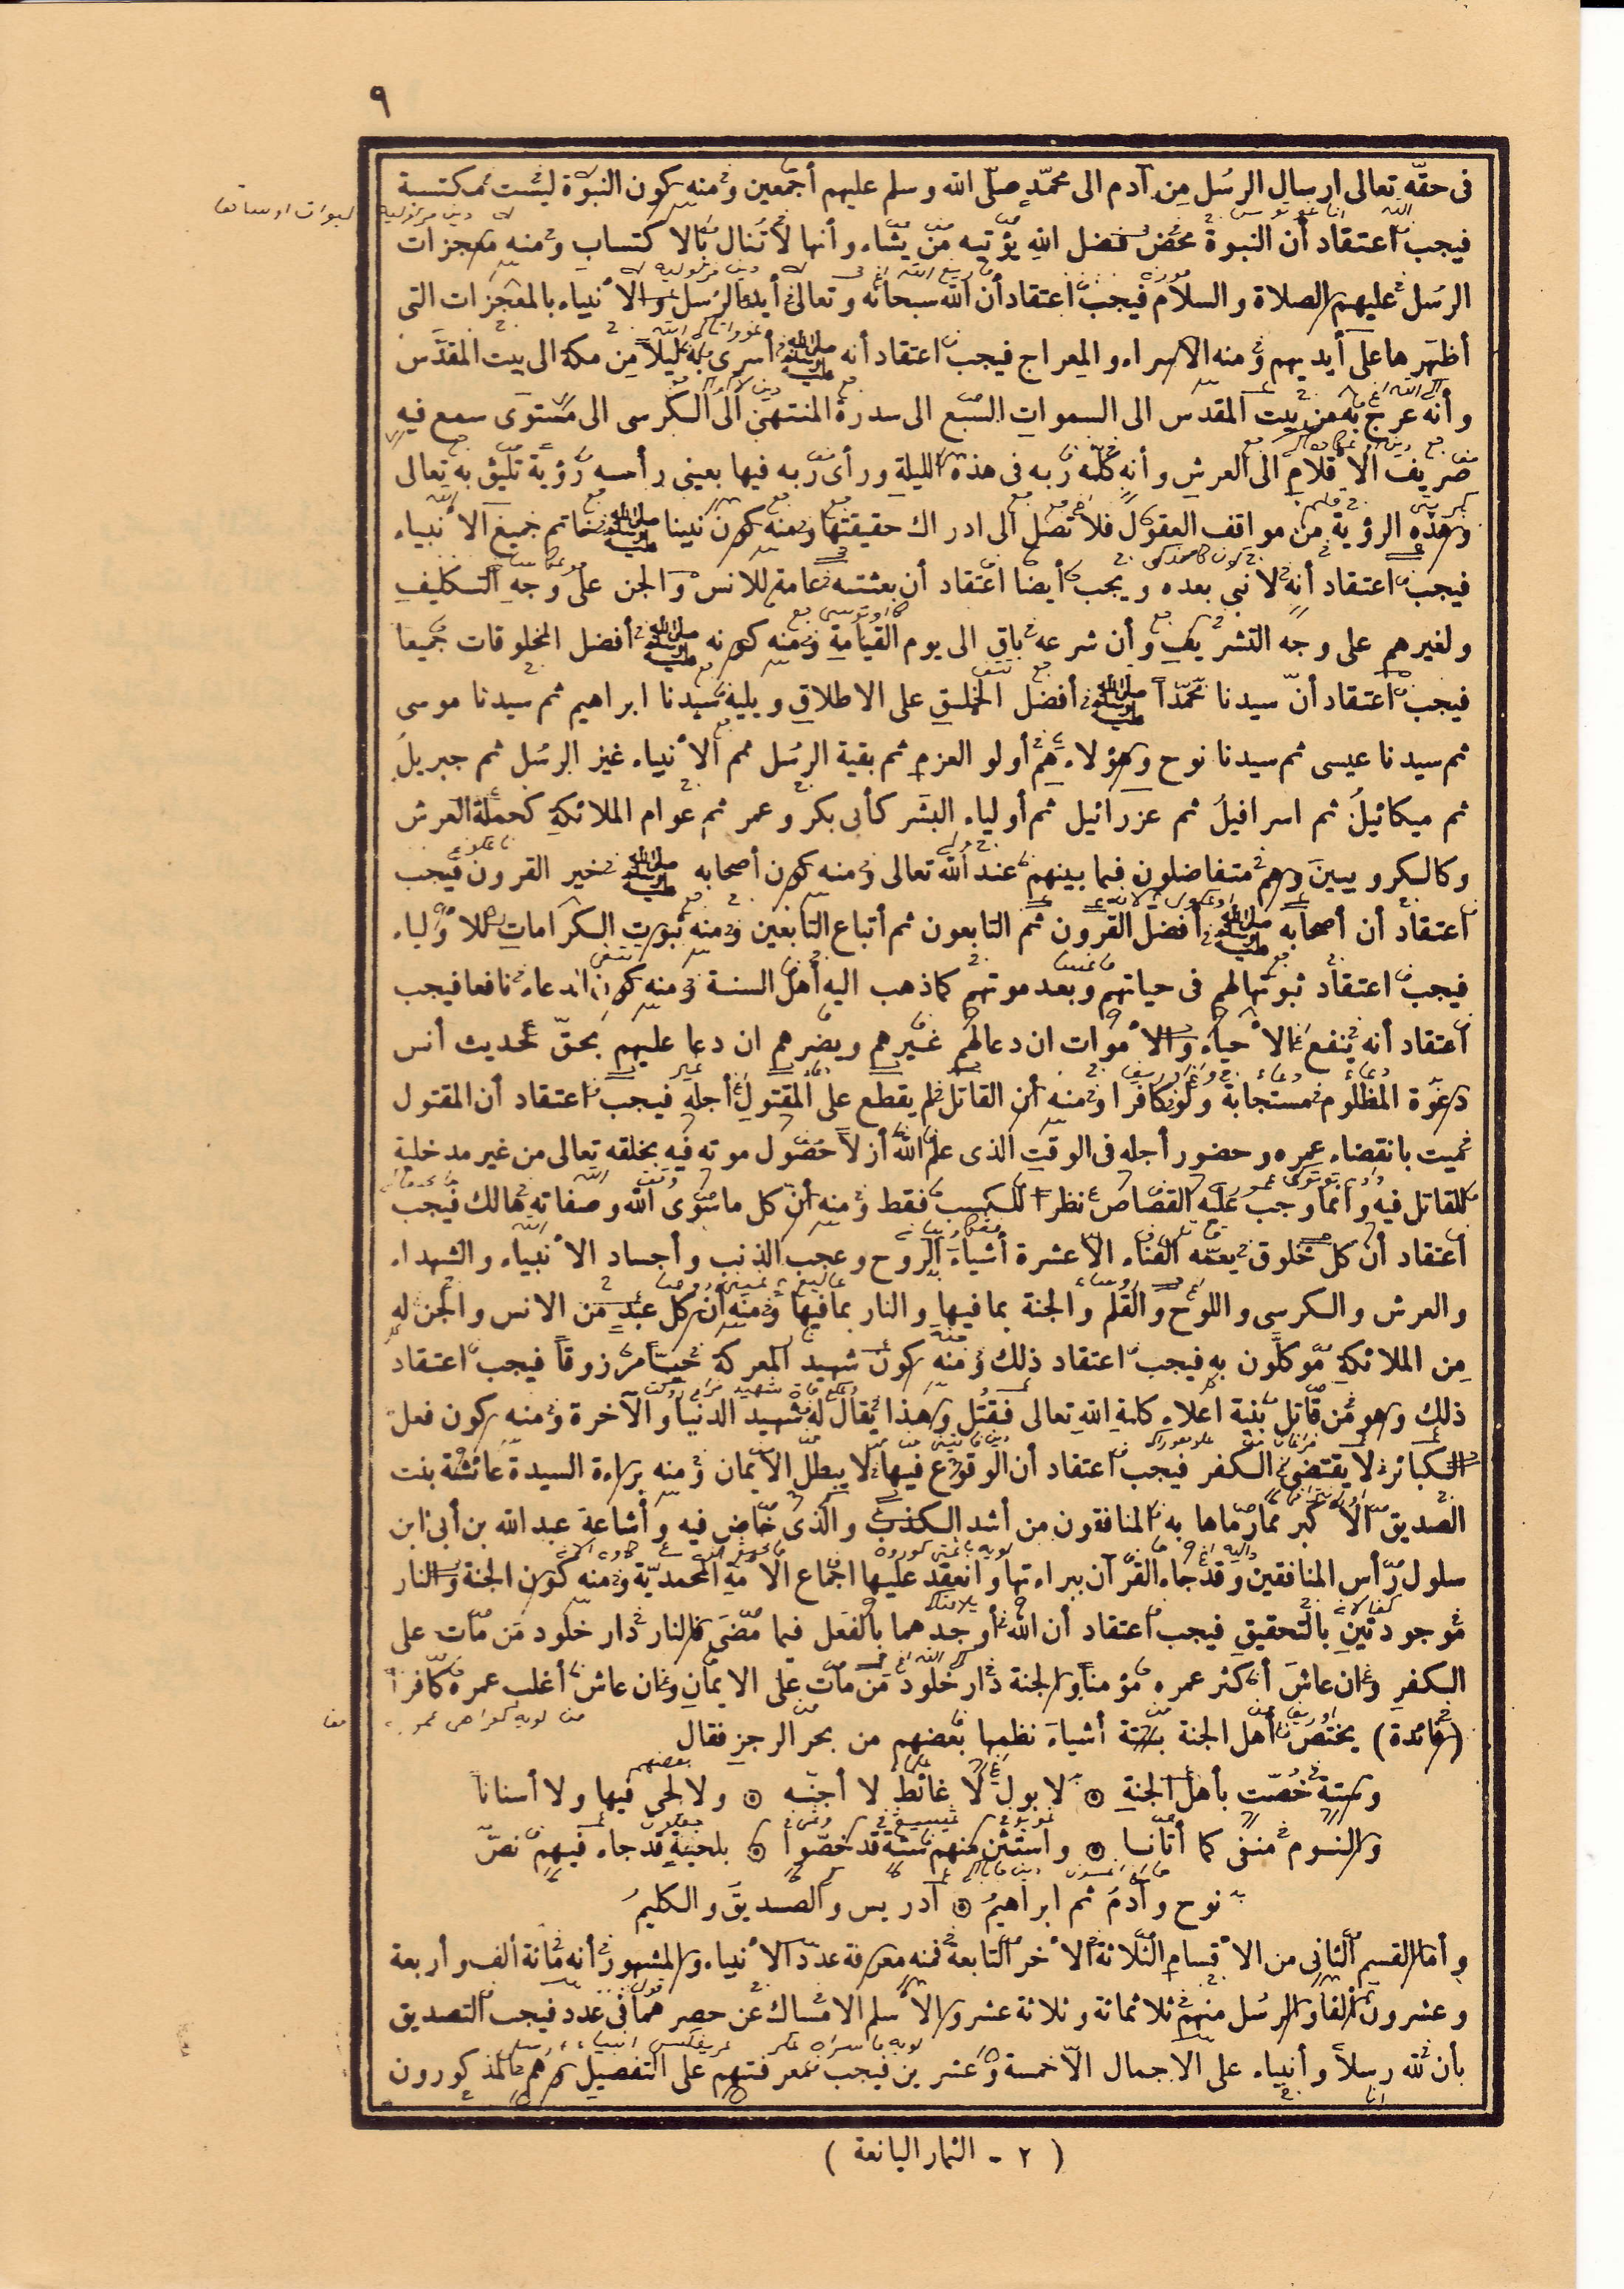 ٩
فى حقّه تعالى ارسال الرسُل مِن آدم الى محمّد صلّى الله وسلم عليهم أجمعين ومنه كون النبوّة ليست مكتسبة
فيجب اعتقاد أن النبوة محض فضل اللهِ يؤتيه من يشاء وأنها لا تُنال بالاكتساب ومنه معجزات
الرسُل عليهم الصلاة والسلام فيجب اعتقاد أن الله سبحانه وتعالى أيد الرسُل والأنبياء بالمعجزات التى
أظهرها على أيديهم ومنه الاسراء والمِعراج فيجب اعتقاد أنه صلى الله عليه وسلم أسرى به ليلاً مِن مكة الى بيت المقدَّس
وأنه عرج به من بيت المقدس الى السموات السبع الى سدرة المنتهى الى الكرسى الى مستوَى سمع فيهِ
صريف الاقلام الى العرشِ وأنه كلّمه ربه فى هذه الليلة ورأى ربه فيها بعينى رأسه رؤية تليق به تعالى
وهذه الرؤية من مواقف العقول فلا تصل الى ادراك حقيقتها ومنه كون نبينا صلى الله عليه وسلم خاتم جميع الأنبياء
فيجب اعتقاد أنه لا نبى بعده ويجب أيضا اعتقاد أن بعثته عامة للانس والجن على وجه التكليف
ولغيرهم على وجه التشريف وأن شرعه باقٍ الى يوم القيامة ومنه كونه صلى الله عليه وسلم أفضل المخلوقات جميعا
فيجب اعتقاد أنّ سيدنا محمّداً صلى الله عليه وسلم أفضل الخلق على الاطلاق ويليه سيدنا ابراهيم ثم سيدنا موسى
ثم سيدنا عيسى ثم سيدنا نوح وهؤلاء هم أولو العزم ثم بقية الرسُل ثم الأنبياء غير الرسُل ثم جبريلُ
ثم ميكائيلُ ثم اسرافيلُ ثم عزرائيل ثم أولياء البشَر كأبى بكر وعمر ثم عوام الملائكةِ كحملة العرش
وكالكروبيين وهم متفاضلون فيما بينهم عند الله تعالى ومنه كون أصحابه صلى الله عليه وسلم خير القرون فيجب
اعتقاد أن أصحابه صلى الله عليه وسلم أفضل القرون ثم التابعون ثم أتباع التابعين ومنه ثبوت الكرامات للأولياء
فيجب اعتقاد ثبوتها لهم فى حياتهم وبعد موتهم كما ذهب اليه أهل السنة ومنه كون الدعاء نافعا فيجب
اعتقاد أنه ينفع الأحياء والأموات ان دعا لهم غيرهم ويضرهم ان دعا عليهم بحقّ لحديث أنس
دعوة المظلوم مستجابة ولو كافرا ومنه أن القاتل لم يقطع على المقتول أجله فيجب اعتقاد أن المقتول
ميت بانقضاء عمره وحضور أجله فى الوقت الذى علم الله أزلاً حصول موته فيه بخلقه تعالى من غير مدخلية
للقاتل فيه وانما وجب عليه القصاص نظرا للكسب فقط ومنه أن كل ما سوى الله وصفاته هالك فيجب
اعتقاد أن كل مخلوق يعمّه الفناء الا عشرة أشياءَ الروح وعجب الذنب وأجساد الأنبياء والشهداء
والعرش والكرسى واللوح والقلم والجنة بما فيها والنار بما فيها ومنه أن كل عبد من الانس والجن له
مِن الملائكة موكلون به فيجب اعتقاد ذلك ومنه كون شهيد المعركة حيّا مرزوقاً فيجب اعتقاد
ذلك وهو من قاتل بنية اعلاء كلمة الله تعالى فقُتل وهذا يقال له شهيد الدنيا والآخرة ومنه كون فعل
الكبائر لا يقتضى الكفر فيجب اعتقاد أن الوقوع فيها لا يبطل الايمان ومنه براءة السيدة عائشة بنت
الصديق الأكبر مما رماها به المنافقون من أشد الكذب والذى خاض فيه وأشاعه عبد الله بن أبىّ ابن
سلول رأس المنافقين وقد جاء القرآن ببراءتها وانعقد عليها اجماع الأمة المحمديّة ومنه كون الجنة والنار
موجودتين بالتحقيق فيجب اعتقاد أن الله أوجدهما بالفعل فيما مضى فالنار دار خلود من مات على
الكفر وان عاشَ أكثر عمره مؤمنا والجنة دار خلود من مات على الايمان وان عاش أغلب عمره كافراً
(فائدة) يختص أهل الجنة بستة أشياءَ نظمها بعضهم من بحر الرجز فقال
وستة خُصّت بأهل الجنةِ ۞ لا بول لا غائط لا أجنّه ۞ ولا لحى فيها ولا أسنانا
والنوم منفى كما أتانا ۞ واستثن منهم ستة قد خصّوا ۞ بلحية قد جاء فيهم نصّ
نوح وآدمُ ثم ابراهيمُ ۞ ادريس والصديقَ والكليمُ
وأما القسم الثانى من الأقسام الثلاثة الأخر التابعة فمنه معرفة عدد الأنبياء والمشهور أنه مائة ألف وأربعة
وعشرون ألفا والرسُل منهم ثلاثمائة وثلاثة عشر والأسلم الامساك عن حصرهما فى عدد فيجب التصديق
بأن لله رسلاً وأنبياء على الاجمال الّا خمسة وعشرين فيجب معرفتهم على التفصيل وهم المذكورون
( ٢ - الثمار اليانعة )